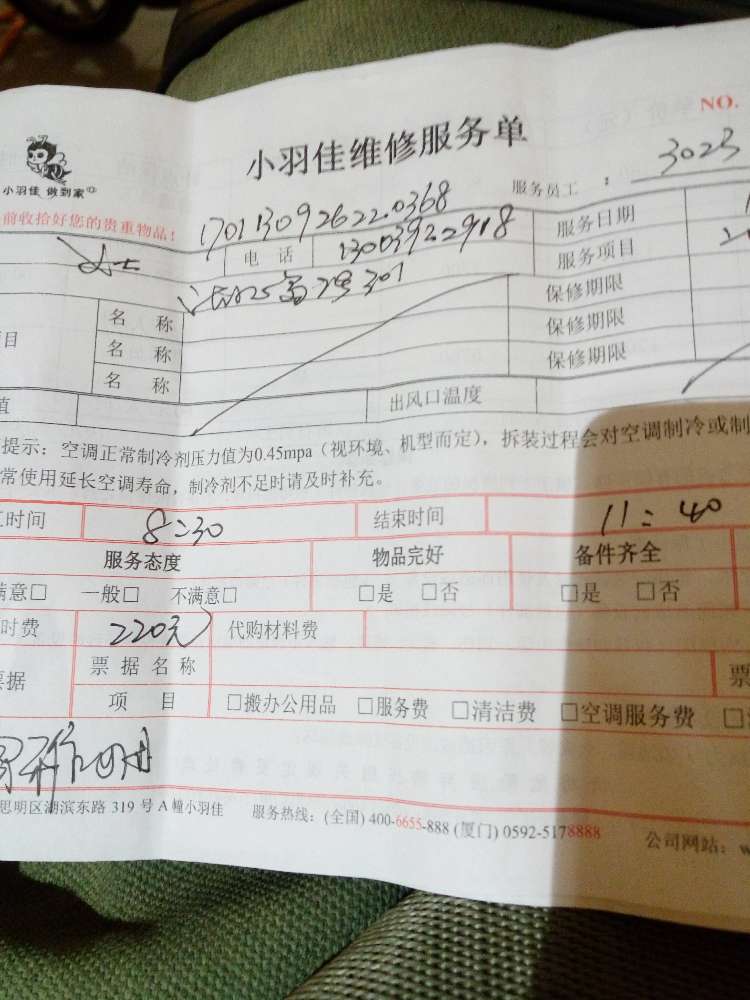 NO.
小羽佳维修服务单
小羽佳 做到家
服务员工 : 3023
前收拾好您的贵重物品!
17011309262203​68
女士 电 话 13003922918 服务日期
服务项目
25 301 保修期限
名 称 保修期限
目 名 称 保修期限
名 称
值 出风口温度
提示:空调正常制冷剂压力值为0.45mpa(视环境、机型而定),拆装过程会对空调制冷或制
常使用延长空调寿命,制冷剂不足时请及时补充。
工时间 8:30 结束时间 11:40
服务态度 物品完好 备件齐全
满意□ 一般□ 不满意□ □是 □否 □是 □否
时费 220元 代购材料费
票据 票 据 名 称 票
项 目 □搬办公用品 □服务费 □清洁费 □空调服务费 □
思明区湖滨东路 319 号 A 幢小羽佳 服务热线:(全国) 400-6655-888 (厦门) 0592-5178888 公司网站:w